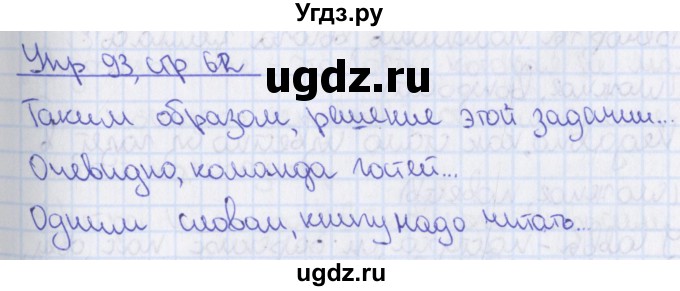 Угдз.ру
Упр 93, стр 62
ugdz.ru
Таким образом, решение этой задачи...
Очевидно, команда гостей...
Одним словом, книгу надо читать...
ugdz.ru